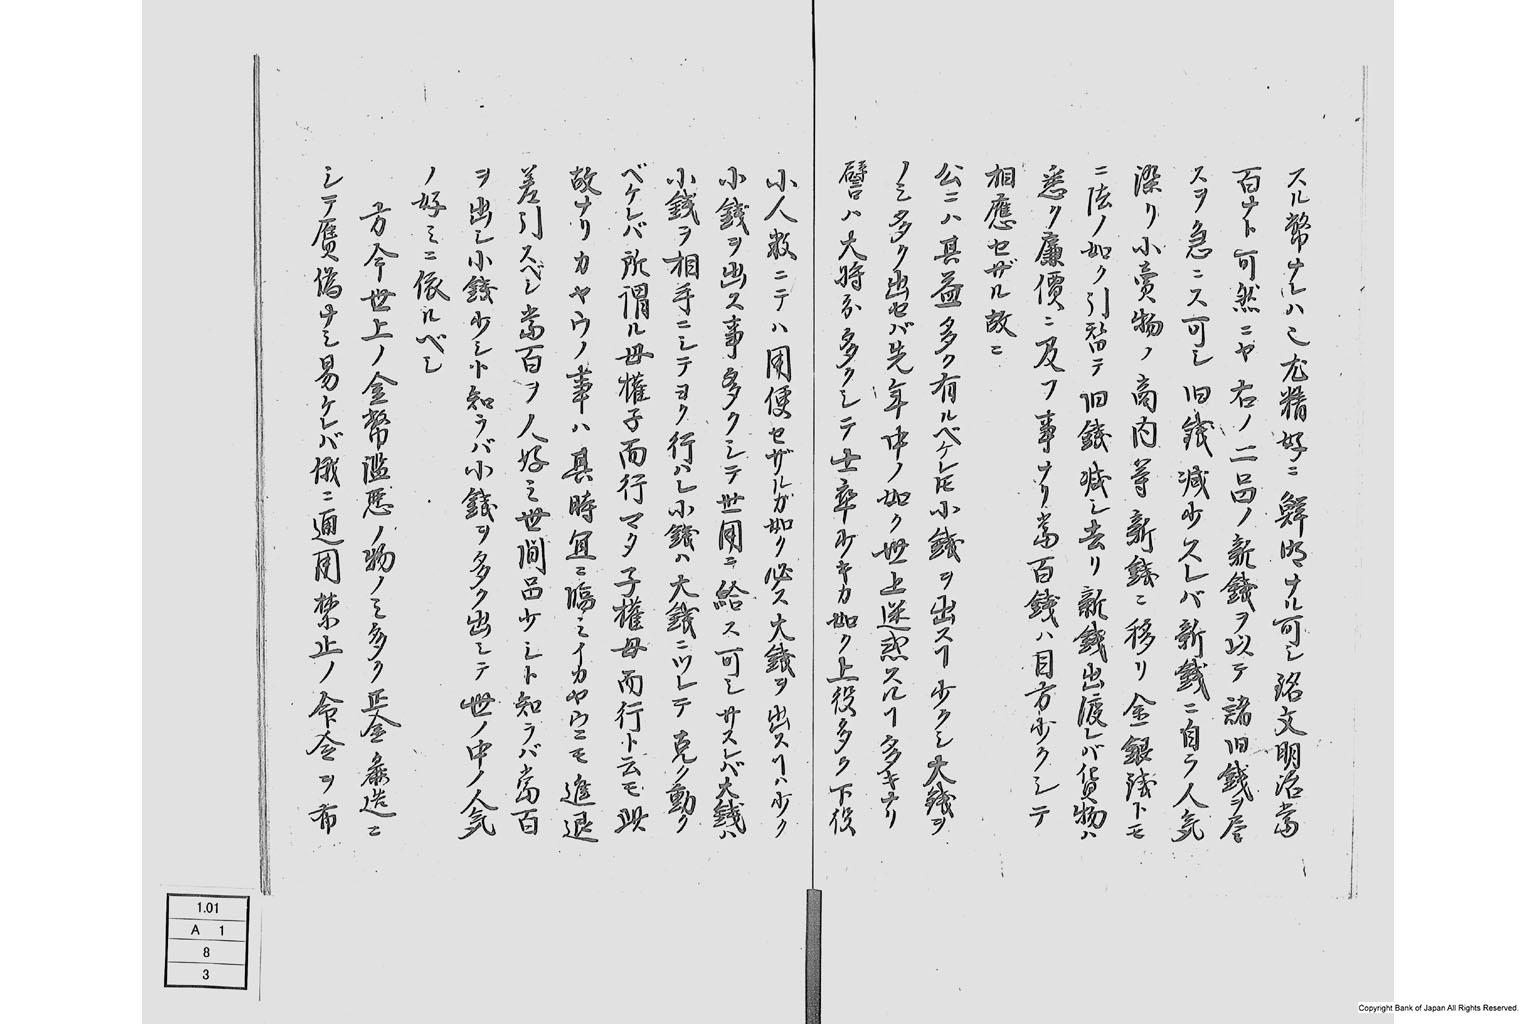 スル幣ナレハ已尤精好ニ鮮明ナル可シ銘文明治當
百ナト可然ニヤ右ノ二品ノ新銭ヲ以テ諸旧銭ヲ尽
スヲ急ニス可シ旧銭減少スレバ新銭ニ自ラ人気
深リ小賣物ノ商内等新銭ニ移リ金銀銭トモ
ニ法ノ如ク引替テ旧銭減シ去リ新銭出渡レバ貨物ハ
悉ク廉價ニ及フ事ナリ當百銭ハ目方少クシテ
相應セザル故ニ
公ニハ其益多ク有ルベケレ𪜈小銭ヲ出スヿ少クシ大銭ヲ
ノミ多ク出セバ先年中ノ如ク世上迷惑スルヿ多キナリ
譬ハ大将分多クシテ士卒少キカ如ク上役多ク下役
小人数ニテハ用便セザルガ如ク必ス大銭ヲ出スヿハ少ク
小銭ヲ出ス事多クシテ世用ニ給ス可シサスレバ大銭ハ
小銭ヲ相手ニシテヨク行ハレ小銭ハ大銭ニツレテ克ク動ク
ベケレバ所謂ル母權子而行マタ子權母而行ト云モ此
故ナリカヤウノ事ハ其時宜ニ臨ミイカヤウニモ進退
差引スベシ當百ヲ人好ミ世間品少シト知ラバ當百
ヲ出シ小銭少シト知ラバ小銭ヲ多ク出シテ世ノ中ノ人気
ノ好ミニ依ルベシ
方今世上ノ金幣濫悪ノ物ノミ多ク正金麁造ニ
シテ贋偽ナシ易ケレバ俄ニ通用禁止ノ令ヲ布
1.01
A 1
8
3
Copyright Bank of Japan All Rights Reserved.